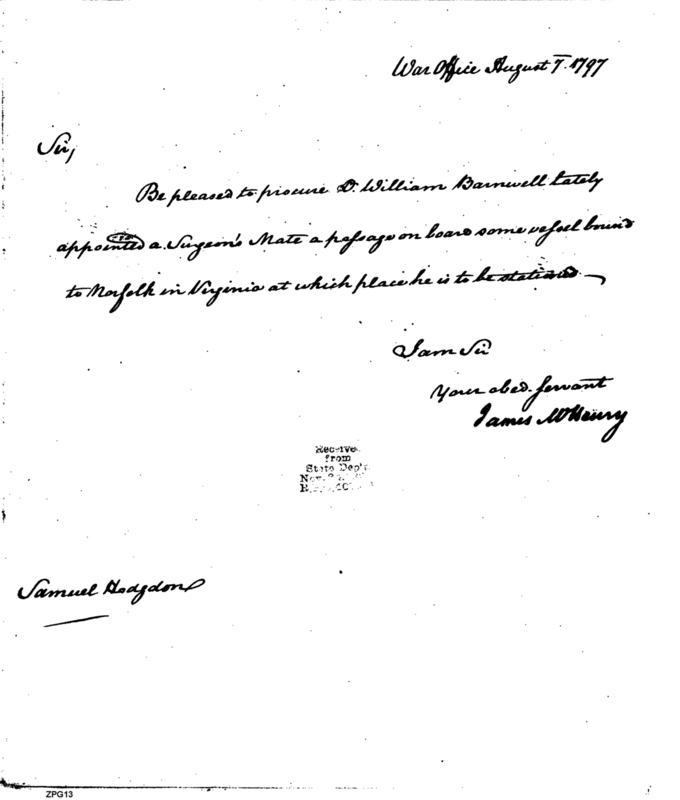 War Office August 7. 1797
Sir,
Be pleased to procure Dr. William Barnwell lately
appointed a Surgeon's Mate a passage on board some vessel bound
to Norfolk in Virginia at which place he is to be stationed
I am Sir
Your obed. servant
James McHenry
Receive
from
State Dep't
Samuel Hodgdon
ZPG13